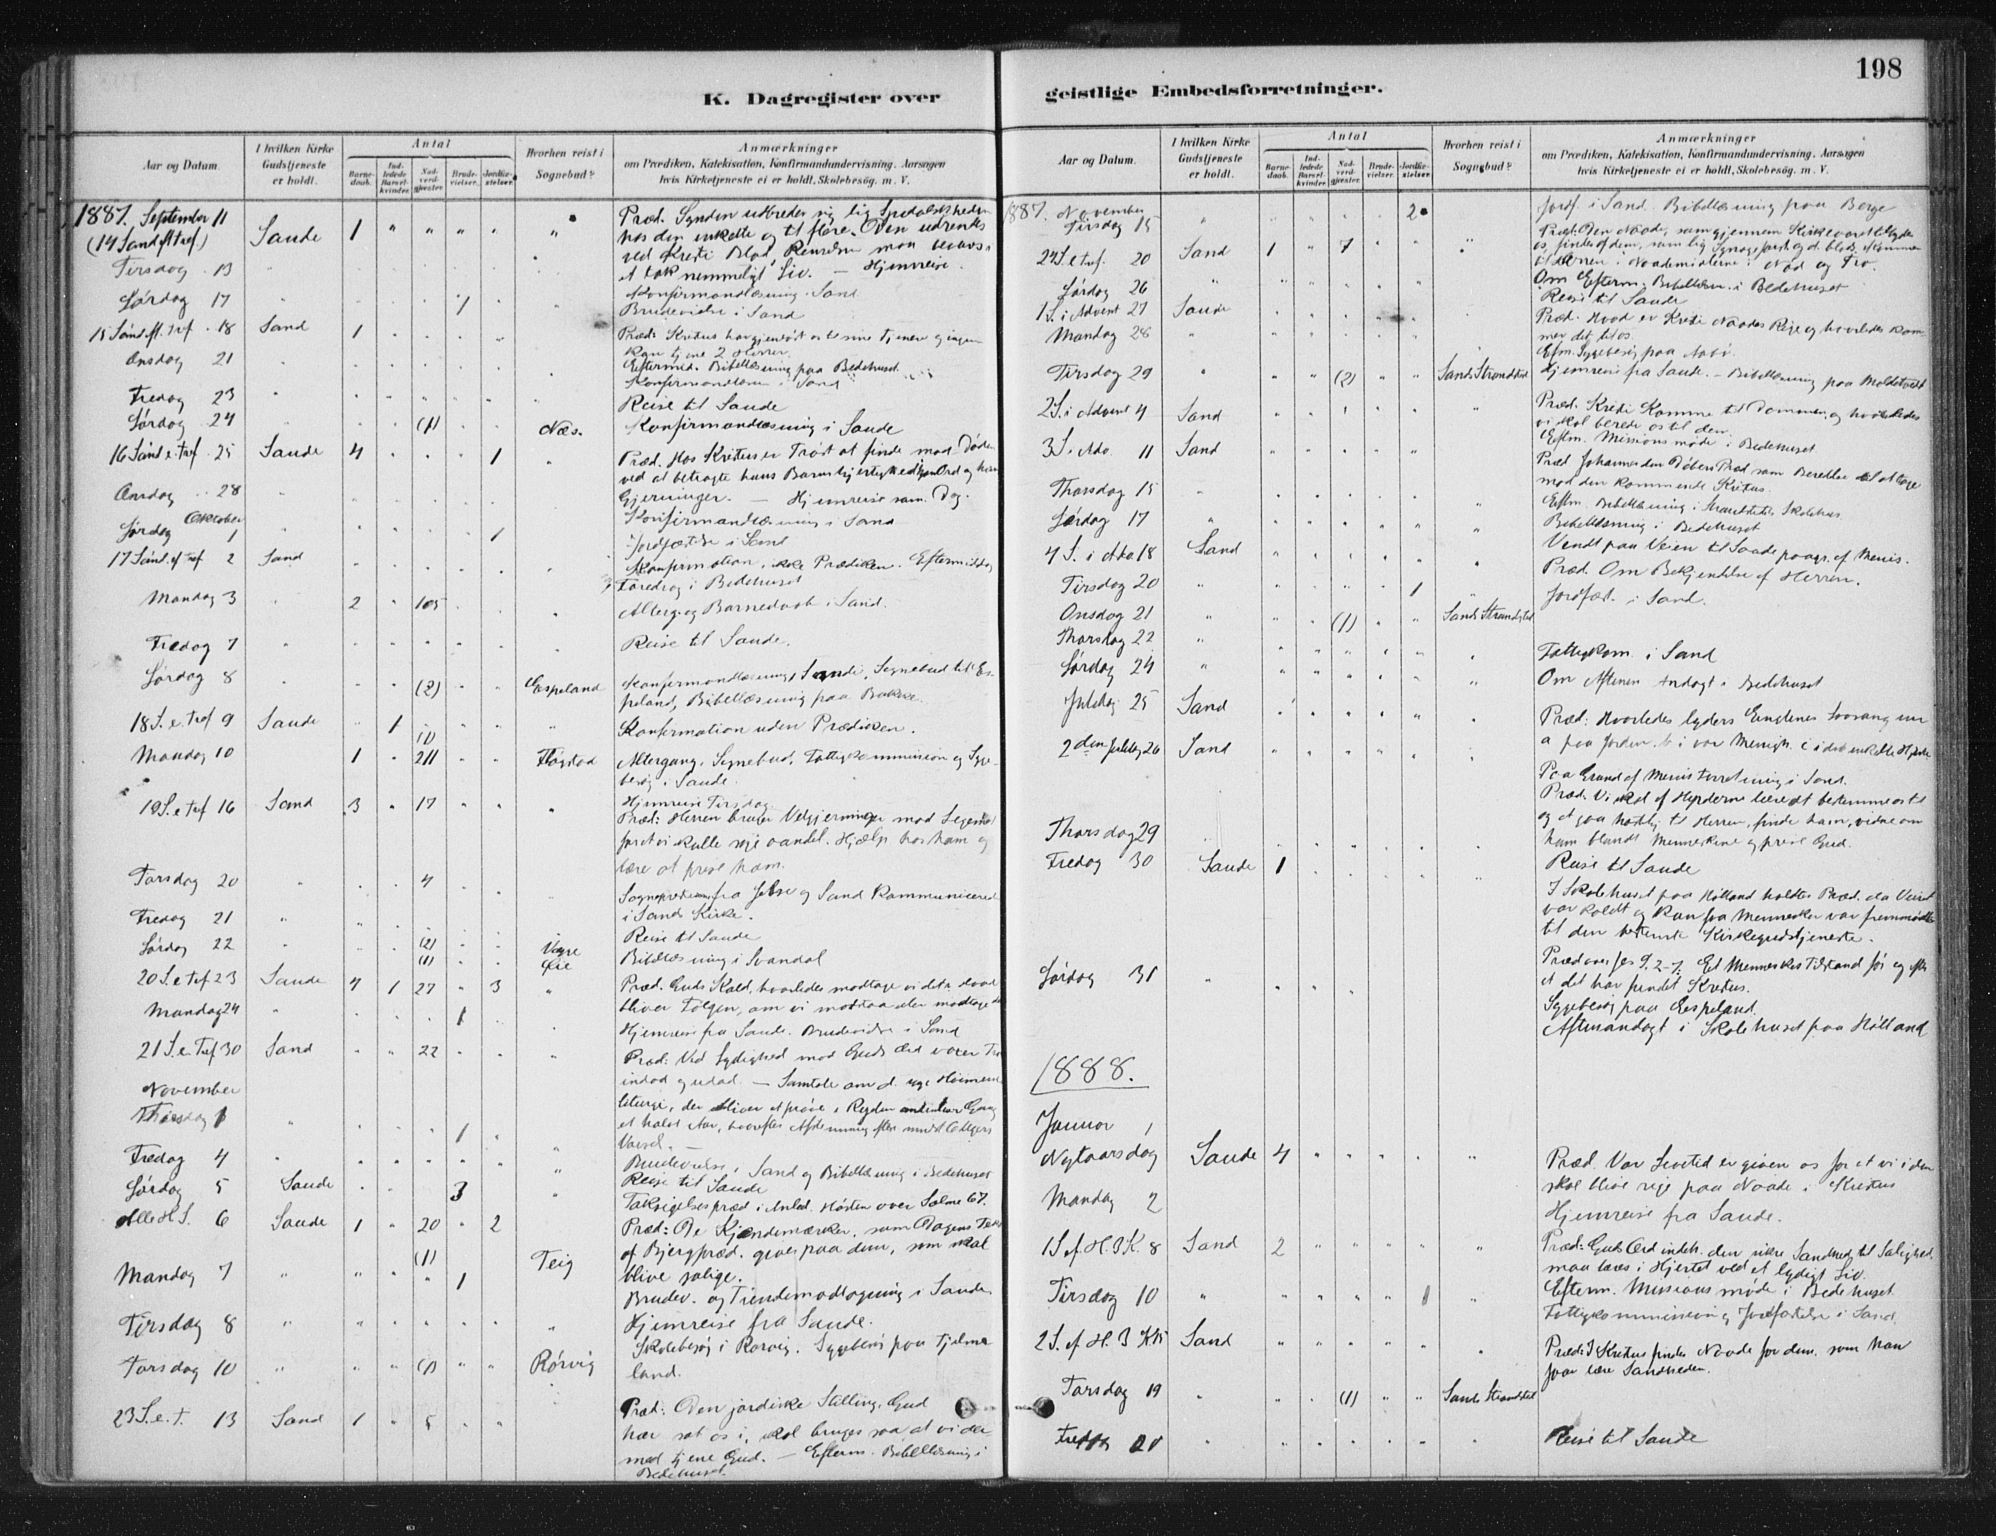 198
K. Dagregister over geistlige Embedsforretninger.
Aar og Datum.
I hvilken Kirke Gudstjeneste er holdt.
Antal
Barnedaab.
Indledede Barselkvinder.
Nadverdgjæster.
Brudevielser.
Jordfæstelser.
Hvorhen reist i Sognebud?
Anmærkninger
om Prædiken, Katekisation, Konfirmandundervisning, Aarsagen
hvis Kirketjeneste ei er holdt, Skolebesøg, m. V.
1887. September 11
(14 Sand. ft tref.) Saude 1 " " " " "
Præd. Synden udbreder sig lig Spedalskheden
hos den enkelte og til flere. Den udrendes
ved Kristi Blod. Renselsen maa bevares i
et taknemmeligt Liv. — Hjemreise.
Tirsdag 13
Konfirmandlæsning i Sand
Lørdag 17 1
Brudevielse i Sand
15 Sønd. ft. tref. 18 Sand 1
Præd: Kristus har gjenløst os til sine Tjenere og ingen
kan tjene 2 Herrer.
Eftermid. Bibellæsning paa Bedehuset
Onsdag 21
Konfirmandlæsn i Sand
Fredag 23
Reise til Saude
Lørdag 24 (1) Næs.
Konfirmandlæsning i Saude
16 Sønd. e. tref. 25 Saude 4 1
Præd. Hos Kristus er Trøst at finde mod Døden
ved at betragte hans Barmhjertighed, hans Ord og hans
Gjerninger. — Hjemreise sam. Dag.
Onsdag 28
Konfirmandlæsning i Sand
Oktober
Lørdag 1 1
Jordfæstelse i Sand
17 Sønd. ef tref 2 Sand
Konfirmation, ikke Prædiken. Eftermiddag
Foredrag i Bedehuset
Mandag 3 2 " 105
Alterg. og Barnedaab i Sand.
Fredag 7
Reise til Saude.
Lørdag 8 (2) Espeland
Konfirmandlæsning i Saude, Sognebud til Es-
peland, Bibellæsning paa Bakke.
18 S. e. tref 9 Saude " 1
Konfirmation uden Prædiken.
(1)
Mandag 10 1 " 211 Fløgstad
Altergang, Sognebud, Fattigkommission og Syge-
besøg i Saude.
Hjemreise Tirsdag
19 S. e tref 16 Sand 3 " 17
Præd: Herren bruger Velgjerninger mod Legemet
foråt vi skulle søge aandel. Hjælp hos ham og
lære at prise ham.
Torsdag 20 4
Sogneprestene fra Jelse og Sand kommunicerede
i Sands Kirke.
Fredag 21
Reise til Saude
Lørdag 22 (2) Vogre
(1) Øie
Bibellæsning i Svandal
20 S. e tref 23 Saude 7 1 27 3
Præd. Guds Kald, hvorledes modtage vi det og hvad
bliver Følgen, om vi modstaa eller modtage det
Mandag 24 1
Hjemreise fra Saude. Brudevielse i Sand
21 S. e. Tref 30 Sand " " 22
Præd: Ved Lydighed mod Guds Ord vorer Tro
indad og udad. — Samtale om d. nye Høimesse
liturgi, der bliver at prøve
et halvt Aar, hvorefter Afstemning efter mindst 8 Dagers
Varsel. —
November
Tirsdag 1 1
Brudevielse i Sand og Bibellæsning i Bedehuset
Fredag 4
Reise til Saude
Lørdag 5 Saude 3
Taksigelsespræd. i Anled. Høsten over Salme 67.
Alle H. S. 6 Saude 1 " 20 " 2
Præd: De Kjendemærker, som Dagens Text
af Bjergpræd. giver paa dem, som skal
blive salige.
(1) Teig
Mandag 7 1
Brudev. og Tiendemodtagning i Saude.
Tirsdag 8
Hjemreise fra Saude.
Torsdag 10 (1) Rørvig
Skolebesøg i Rørvig. Sygebesøg paa Fjelma
land.
23 S. e. T. 13 Sand 1 " 5
Præd: Den jordiske Stilling, Gud
har sat os i, skal bruges saa at vi der
med tjene Gud. — Efterm. Bibellæsning i
Bedehuset.
Aar og Datum.
I hvilken Kirke Gudstjeneste er holdt.
Antal
Barnedaab.
Indledede Barselkvinder.
Nadverdgjæster.
Brudevielser.
Jordfæstelser.
Hvorhen reist i Sognebud?
Anmærkninger
om Prædiken, Katekisation, Konfirmandundervisning, Aarsagen
hvis Kirketjeneste ei er holdt, Skolebesøg, m. V.
887. November
Tirsdag 15 2
Jordf. i Sand. Bibellæsning paa Berge
24 S. e tref. 20 Sand 1 " 7
Præd: Den Naade, som gjennem Kirkeaaret tilbydes
os, findes af dem, som lig Synagogeforst. og d. blods. Kvinde
til Herren i Naademidlerne i Nød og Tro.
Om Efterm. Bibellæsn. i Bedehuset
Lørdag 26
Reise til Saude
1 S. i Advent 27 Saude
Præd. Hvad er Kristi Naades Rige og hvorledes kom-
mer det til os.
Mandag 28
Efm. Sygebesøg paa Nabø.
Tirsdag 29 (2) Sands Strandsted
Hjemreise fra Saude. — Bibellæsning paa Moldetvedt
2 S. i Advent 4 Sand
Præd. Kristi Komme til Dommen, og hvorledes
vi skal berede os til den.
Eftm. Missionsmøde i Bedehuset
3 S. i Adv. 11 Sand
Præd Johannes den Døbers Præd som Beredelse til at tage
mod den kommende Kristus.
Eftm. Bibellæsning i Strandstedets Skolehus.
Thorsdag 15
Bibellæsning i Bedehuset
Lørdag 17
Vendt paa Veien til Saude paagr. af Menis.
4 S. i Adv. 18 Sand
Præd. Om Bekjendelse af Herren.
Tirsdag 20 1
Jordfæst. i Sand.
Onsdag 21 (1) Sands Strandsted
Thorsdag 22
Fattigkom. i Sand
Lørdag 24
Om Aftenen Andagt i Bedehuset
Juledag 25 Sand
Præd: Hvorledes lyder Englenes Lovsang nu
a paa Jorden b i vor Menigh. c i det enkelte Hjerte
2den Juledag 26 Sand
Paa Grund af Menisforretning i Sand.
Præd: Vi skal af Hyrderne lære at bestemme os til
og at gaa hastelig til Herren, finde ham, vidne om
ham blandt Menneskene og prise Gud.
Thorsdag 29
Reise til Saude
Fredag 30 Saude 1
I Skolehuset paa Hølland holdtes Præd. da Veiret
var koldt og kun faa Mennesker var fremmødte
til den bestemte Kirkegudstjeneste.
Præd over Jes 9. 2-7. Et Menneskes Tilstand før og efter
at det har fundet Kristus.
Lørdag 31
Sygebesøg paa Espeland.
Aftenandagt i Skolehuset paa Hølland
1888.
Januar 1
Nytaarsdag Saude 4
Præd. Vor Levetid er given os for at vi i den
skal blive rige paa Naade i Kristus
Mandag 2
Hjemreise fra Saude.
1 S. f. H. 3 K. 8 Sand 2
Præd: Guds Ord indeh. den sikre Sandhed til Salighed.
maa læses i Hjertet ved et lydigt Liv.
Efterm. Missionsmøde i Bedehuset
Tirsdag 10 1
Fattigkommission og Jordfæstelse i Sand.
2 S. ef H. 3 K. Sand
Præd: I Kristus findes Naade for dem, som kan
faar lære Sandheden.
Torsdag 19 (1) Sands Strandsted
Fredag 20
Reise til Saude